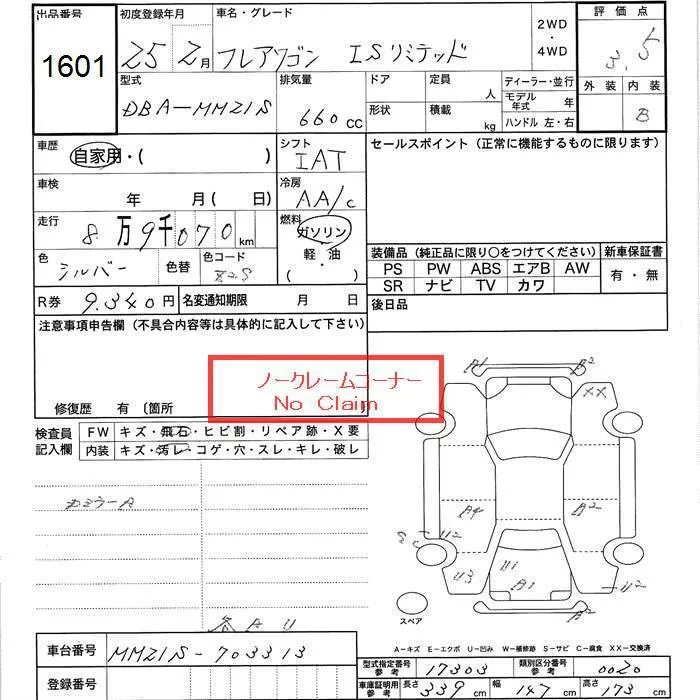 出品番号 初度登録年月 車名・グレード 2WD・4WD 評価点
1601 25 2月 フレアワゴン ISリミテッド 3.5
型式 排気量 ドア 定員 人 ディーラー・並行 外装 内装
DBA-MM21S 660cc 形状 積載 kg モデル年式 年 B
ハンドル 左・右
車歴 自家用・( ) シフト IAT セールスポイント（正常に機能するものに限ります）
車検 年 月(日) 冷房 AA/C
走行 8万9千070km 燃料 ガソリン・軽油 ( )
色 シルバー 色替 色コード Z2S
装備品（純正品に限り○をつけてください） 新車保証書
PS PW ABS エアB AW 有・無
SR ナビ TV カワ
R券 9,340円 名変通知期限 月 日 後日品
注意事項申告欄（不具合内容等は具体的に記入して下さい）
ノークレームコーナー
No Claim
修復歴 有〔箇所
検査員記入欄 FW キズ・飛石・ヒビ割・リペア跡・X要
内装 キズ・汚レ・コゲ・穴・スレ・キレ・破レ
カミラーA
各AU
A1 B2
XX
A4 B2
U2
U3 U1 B1 U2
スペア
A-キズ E-エクボ U-凹み W-補修跡 S-サビ C-腐食 XX-交換済
車台番号 MM21S-703313
型式指定番号参考 17303 類別区分番号参考 0020
登録番号
車庫証明用参考 長さ 339cm 幅 147cm 高さ 173cm